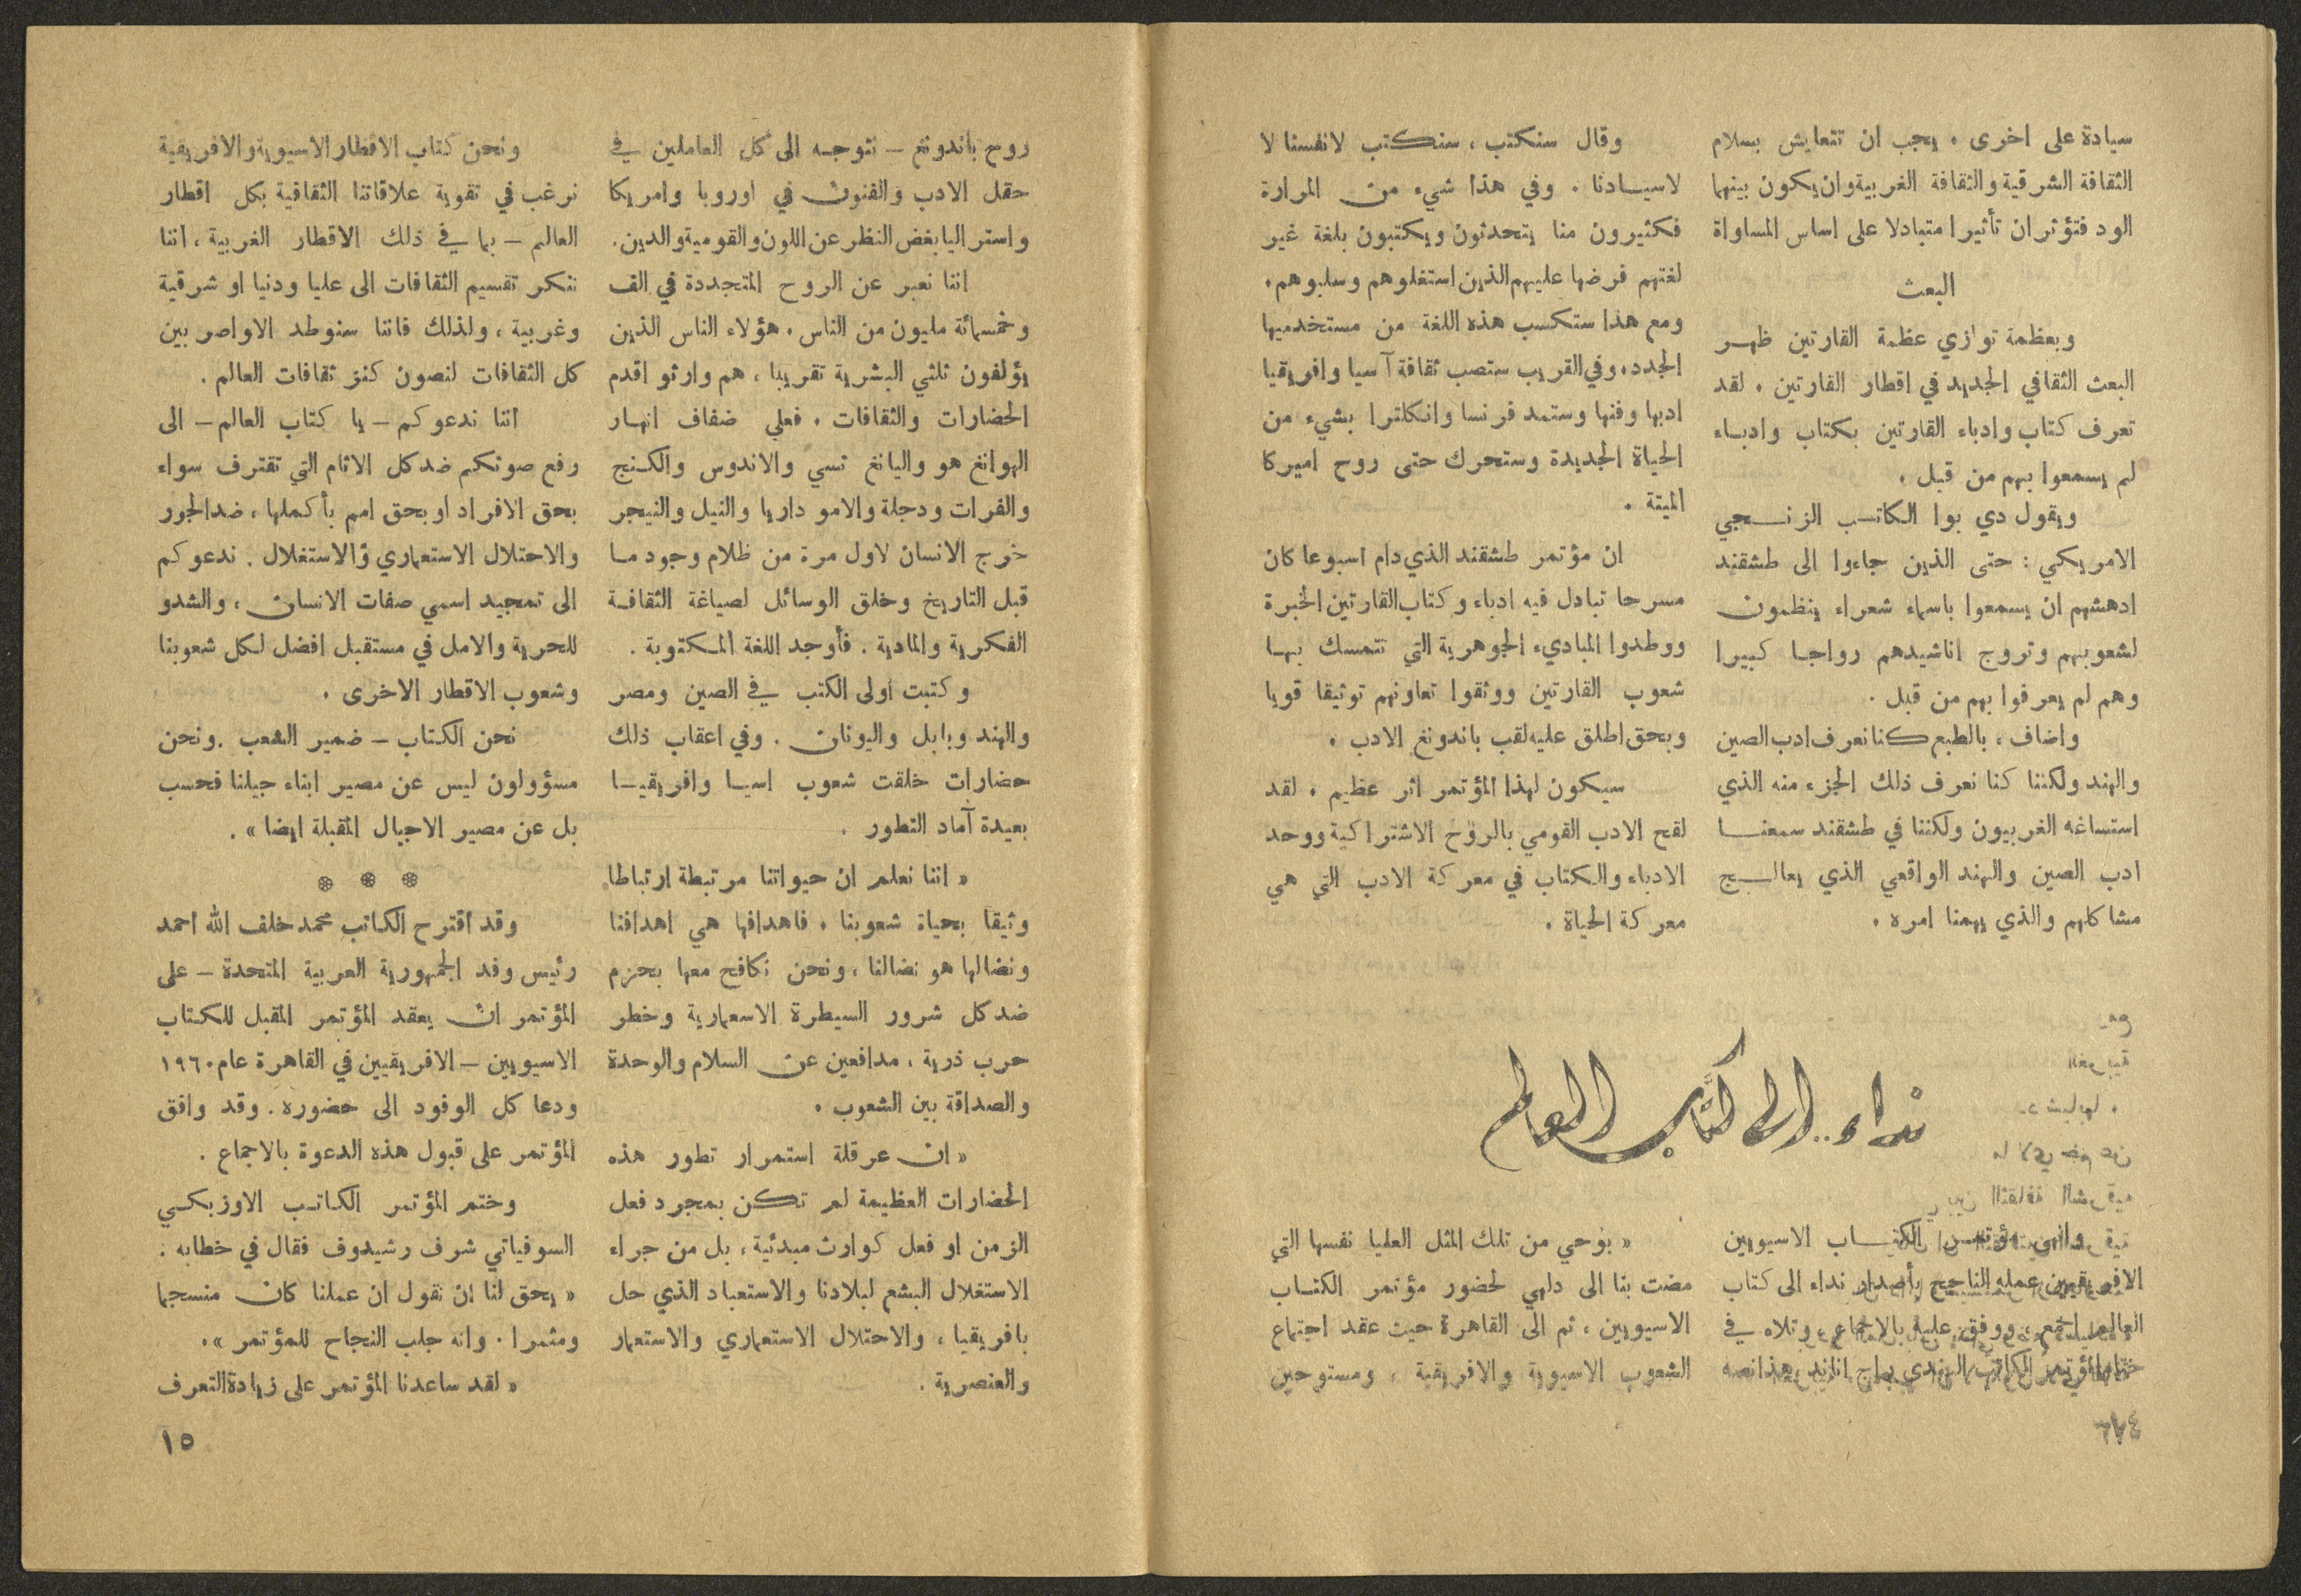 سيادة على اخرى . يجب ان تتعايش بسلام
الثقافة الشرقية والثقافة الغربية وان يكون بينهما
الود فتؤثران تأثيرا متبادلا على اساس المساواة
البعث
وبعظمة توازي عظمة القارتين ظهر
البعث الثقافي الجديد في اقطار القارتين . لقد
تعرف كتاب وادباء القارتين بكتاب وادباء
لم يسمعوا بهم من قبل .
ويقول دي بوا الكاتب الزنجي
الامريكي : حتى الذين جاءوا الى طشقند
ادهشهم ان يسمعوا باسماء شعراء ينظمون
لشعوبهم وتروج اناشيدهم رواجا كبيرا
وهم لم يعرفوا بهم من قبل .
واضاف ، بالطبع كنا نعرف ادب الصين
والهند ولكننا كنا نعرف ذلك الجزء منه الذي
استساغه الغربيون ولكننا في طشقند سمعنا
ادب الصين والهند الواقعي الذي يعالج
مشاكلهم والذي يهمنا امره .
وقال سنكتب ، سنكتب لانفسنا لا
لاسيادنا . وفي هذا شيء من المرارة
فكثيرون منا يتحدثون ويكتبون بلغة غير
لغتهم فرضها عليهم الذين استغلوهم وسلبوهم .
ومع هذا ستكسب هذه اللغة من مستخدميها
الجدد . وفي القريب ستصب ثقافة آسيا وافريقيا
ادبها وفنها وستمد فرنسا وانكلترا بشيء من
الحياة الجديدة وستحرك حتى روح اميركا
الميتة .
ان مؤتمر طشقند الذي دام اسبوعا كان
مسرحا تبادل فيه ادباء وكتاب القارتين الخبرة
ووطدوا المباديء الجوهرية التي تتمسك بها
شعوب القارتين ووثقوا تعاونهم توثيقا قويا
وبحق اطلق عليه لقب باندونغ الادب .
سيكون لهذا المؤتمر اثر عظيم . لقد
لقح الادب القومي بالروح الاشتراكية ووحد
الادباء والكتاب في معركة الادب التي هي
معركة الحياة .
نداء .. الى كتّاب العالم
وانهي مؤتمر الكتاب الاسيويين
الافريقيين عمله الناجح بأصدار نداء الى كتاب
العالم اجمع ، ووفق عليه بالاجماع ، وتلاه في
ختام المؤتمر الكاتب الهندي براج اناند ، هذا نصه
« بوحي من تلك المثل العليا نفسها التي
مضت بنا الى دلهي لحضور مؤتمر الكتاب
الاسيويين ، ثم الى القاهرة حيث عقد اجتماع
الشعوب الاسيوية والافريقية ، ومستوحين
١٤
روح باندونغ – نتوجه الى كل العاملين في
حقل الادب والفنون في اوروبا وامريكا
واستراليا بغض النظر عن اللون والقومية والدين .
اننا نعبر عن الروح المتجددة في الف
وخمسمائة مليون من الناس . هؤلاء الناس الذين
يؤلفون ثلثي البشرية تقريبا ، هم وارثو اقدم
الحضارات والثقافات . فعلى ضفاف انهار
الهوانغ هو واليانغ تسي والاندوس والكنج
والفرات ودجلة والامو داريا والنيل والنيجر
خرج الانسان لاول مرة من ظلام وجود ما
قبل التاريخ وخلق الوسائل لصياغة الثقافة
الفكرية والمادية . فأوجد اللغة المكتوبة .
وكتبت اولى الكتب في الصين ومصر
والهند وبابل واليونان . وفي اعقاب ذلك
حضارات خلقت شعوب اسيا وافريقيا
بعيدة آماد التطور .
« اننا نعلم ان حيواتنا مرتبطة ارتباطا
وثيقا بحياة شعوبنا . فاهدافها هي اهدافنا
ونضالها هو نضالنا ، ونحن نكافح معها بحزم
ضد كل شرور السيطرة الاسعمارية وخطر
حرب ذرية ، مدافعين عن السلام والوحدة
والصداقة بين الشعوب .
« ان عرقلة استمرار تطور هذه
الحضارات العظيمة لم تكن بمجرد فعل
الزمن او فعل كوارث مبدئية ، بل من جراء
الاستغلال البشع لبلادنا والاستعباد الذي حل
بافريقيا ، والاحتلال الاستعماري والاستعمار
والعنصرية .
ونحن كتاب الاقطار الاسيوية والافريقية
نرغب في تقوية علاقاتنا الثقافية بكل اقطار
العالم – بما في ذلك الاقطار الغربية ، اننا
ننكر تقسيم الثقافات الى عليا ودنيا او شرقية
وغربية ، ولذلك فاننا سنوطد الاواصر بين
كل الثقافات لنصون كنز ثقافات العالم .
اننا ندعوكم – يا كتاب العالم – الى
رفع صوتكم ضد كل الاثام التي تقترف سواء
بحق الافراد او بحق امم بأكملها ، ضد الجور
والاحتلال الاستعماري والاستغلال . ندعوكم
الى تمجيد اسمي صفات الانسان ، والشدو
للحرية والامل في مستقبل افضل لكل شعوبنا
وشعوب الاقطار الاخرى .
نحن الكتاب – ضمير الشعب . ونحن
مسؤولون ليس عن مصير ابناء جيلنا فحسب
بل عن مصير الاجيال المقبلة ايضا » .
❊ ❊ ❊
وقد اقترح الكاتب محمد خلف الله احمد
رئيس وفد الجمهورية العربية المتحدة – على
المؤتمر ان يعقد المؤتمر المقبل للكتاب
الاسيويين – الافريقيين في القاهرة عام ١٩٦٠
ودعا كل الوفود الى حضوره . وقد وافق
المؤتمر على قبول هذه الدعوة بالاجماع .
وختم المؤتمر الكاتب الاوزبكي
السوفياتي شرف رشيدوف فقال في خطابه :
« يحق لنا ان نقول ان عملنا كان منسجما
ومثمرا . وانه جلب النجاح للمؤتمر » .
« لقد ساعدنا المؤتمر على زيادة التعرف
١٥